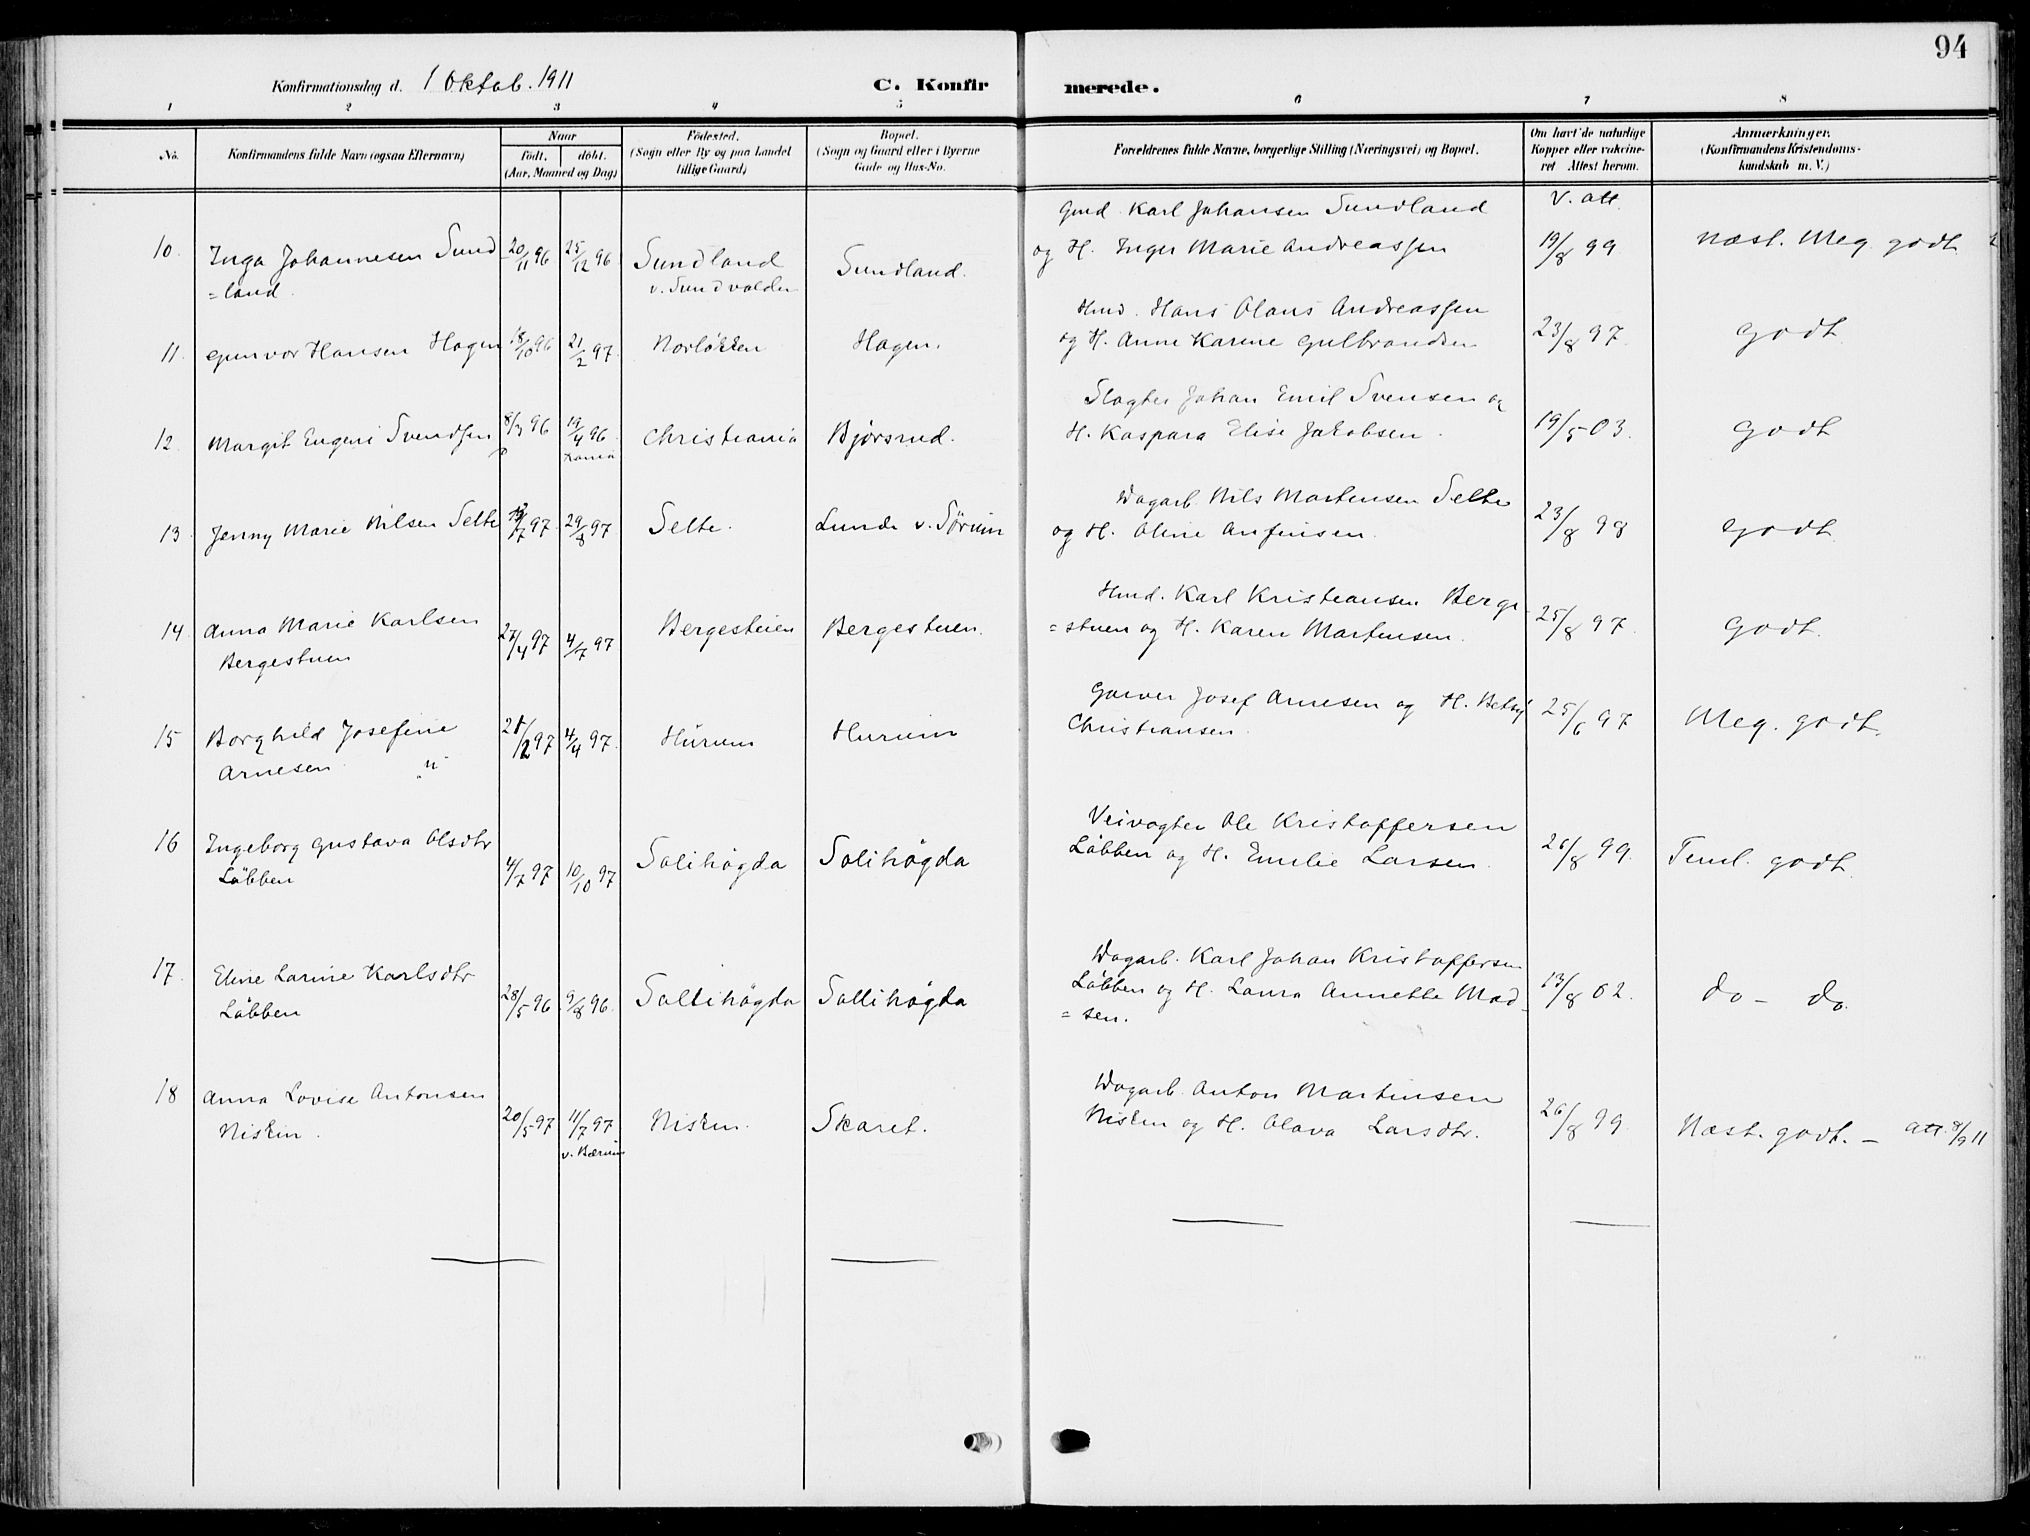 94
Konfirmationsdag d. 1 Oktob. 1911
C. Konfirmerede.
1 2 3 4 5 6 7 8
No.
Konfirmandens fulde Navn (ogsaa Efternavn)
Naar
födt. döbt.
(Aar, Maaned og Dag)
Födested.
(Sogn eller By og paa Landet
tillige Gaard)
Bopæl.
(Sogn og Gaard eller i Byerne
Gade og Hus-No.
Forældrenes fulde Navne, borgerlige Stilling (Næringsvei) og Bopæl.
Om havt de naturlige
Kopper eller vakcine-
ret Attest herom.
Anmærkninger.
(Konfirmandens Kristendoms-
kundskab m. V.)
10. Inga Johannesen Sund
=land.
20/11 96 25/12 96
Sundland
v. Sundvolden
Sundland.
Gmd. Karl Johansen Sundland
og H. Inger Marie Andreassen
V. att.
19/8 99
Næst. Meg. godt
11. Gunvor Hansen Hagen 18/10 96 21/2 97. Norløkken Hagen.
Hmd. Hans Olaus Andreassen
og H. Anne Karine Gulbrandsen
23/8 97. Godt.
12. Margit Eugeni Svendsen 8/3 96 19/4 96. Christiania Bjørsrud.
Slagter Johan Emil Svensen og
H. Kaspara Elise Jakobsen.
19/5 03. Godt
13. Jenny Marie Nilsen Selte 97. 29/8 97 Selte. Lunde v. Sørum
Dagarb. Nils Martensen Selte
og H. Oline Anfinsen.
23/8 98 Godt.
14. Anna Marie Karlsen
Bergestuen
27/4 97 4/7 97
Bergestuen Bergestuen.
Hmd. Karl Kristiansen Berge-
=stuen og H. Karen Martensen.
25/8 97. Godt.
15 Borghild Josefine
Arnesen "
/2 97 4/4 97.
Hurum Hurum
Garver Josef Arnesen og H. Betsy
Christiansen.
25/6 97 Meg. godt.
16 Ingeborg Gustava Olsdtr
Løbben
4/7 97 10/10 97
Solihøgda Solihøgda
Veivogter Ole Kristoffersen
Løbben og H. Emilie Larsen.
26/8 99. Teml. godt.
17. Eline Larine Karlsdtr
Løbben
28/5 96 9/8 96.
Sollihøgda Sollihøgda
Dagarb. Karl Johan Kristoffersen
Løbben og H. Laura Annette Mad-
=sen.
13/8 02. do – do.
18 Anna Lovise Antonsen
Niskin.
20/5 97 11/7 97
v. Bærum
Niskin. Skaret.
Dagarb. Anton Martinsen
Niskin og H. Olava Larsdtr.
26/8 99. Næst. godt. – att. 8/9 11